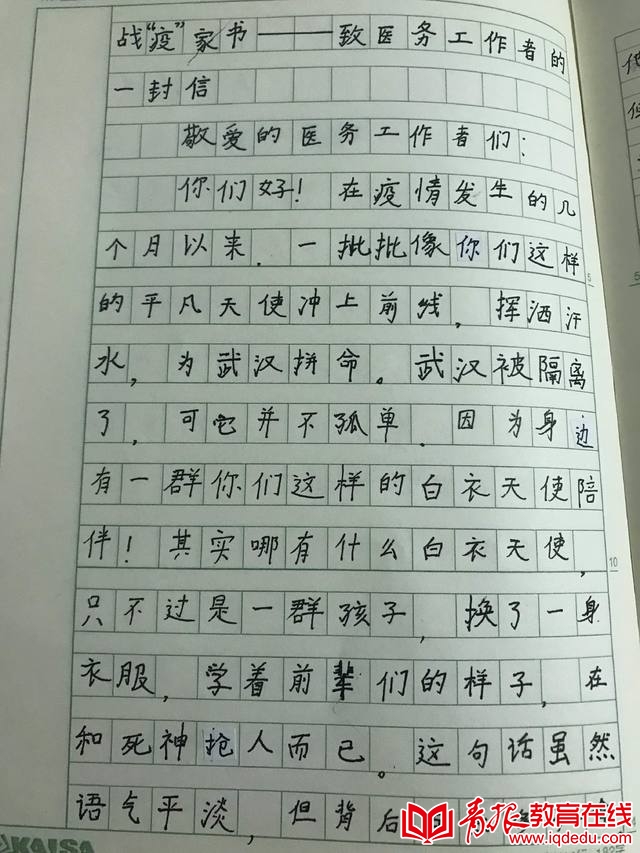 战“疫”家书——致医务工作者的
一封信
敬爱的医务工作者们：
你们好！在疫情发生的几
个月以来．一批批像你们这样
的平凡天使冲上前线，挥洒汗
水，为武汉拼命。武汉被隔离
了，可它并不孤单．因为身边
有一群你们这样的白衣天使陪
伴！其实哪有什么白衣天使，
只不过是一群孩子，换了一身
衣服，学着前辈们的样子，在
和死神抢人而已。这句话虽然
语气平淡，但背后
5
10
KAISA
青报教育在线
www.iqdedu.com